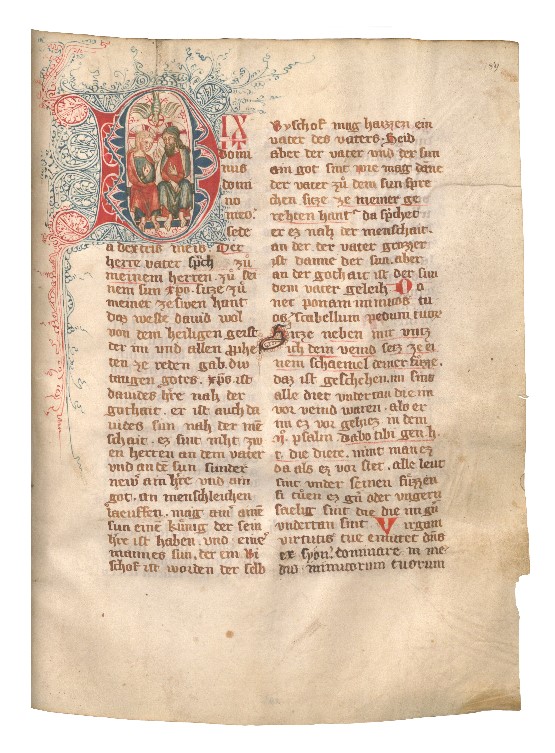 IX
IT
domi
nus
domi
no
meo.
sede
a dextris meis. Der
herre vater sprich zů
meinem herren zů sei
nem sun xpo. sitze zů
meiner zesiwen hant
daz weste david wol
von dem heiligen geist
der im und allen
ten ze reden gab. diw
taugen gotes. xps ist
davides hre nah der
gothait. er ist auch da
vites sun nah der me
schait. ez sint niht zw
en herren an dem vater
und an dē sun. sunder
newr ain hre und ain
got. an menschleichen
taeuffen. mag ain amē
sun eine künig der sein
hre ist haben. und eine
mannes sun. der ein Bi
schof ist worden der selb
Byschof mag haizzen ein
vater des vaters. Seid
aber der vater und der sun
ain got sint wie mag dāne
der vater zů dem sun spre
chen size ze meiner ge
rehten hant da spchet
er ez nah der menschait.
an der der vater grozzer
ist danne der sun. aber
an der gothait ist der sun
dem vater geleih Do
nec ponam inimicos tu
os scabellum pedum tuor
Sitze neben mir untz
ich dein veind setz ze ei
nem schaemel deiner füzze.
daz ist geschehen. im sint
alle diet undertan die im
vor veind waren. als er
im ez vor gehiez in dem
psalm Dabo tibi gen. h.
t. die diete. nimt man ez
da als ez vor stet. alle leut
sint under seinen füzzen
si tůen ez gů oder ungern
saelig sint die die im gů
undertan sint Virgam
virtutis tue emittet dns
ex syon. dominare in me
dio inimicorum tuorum